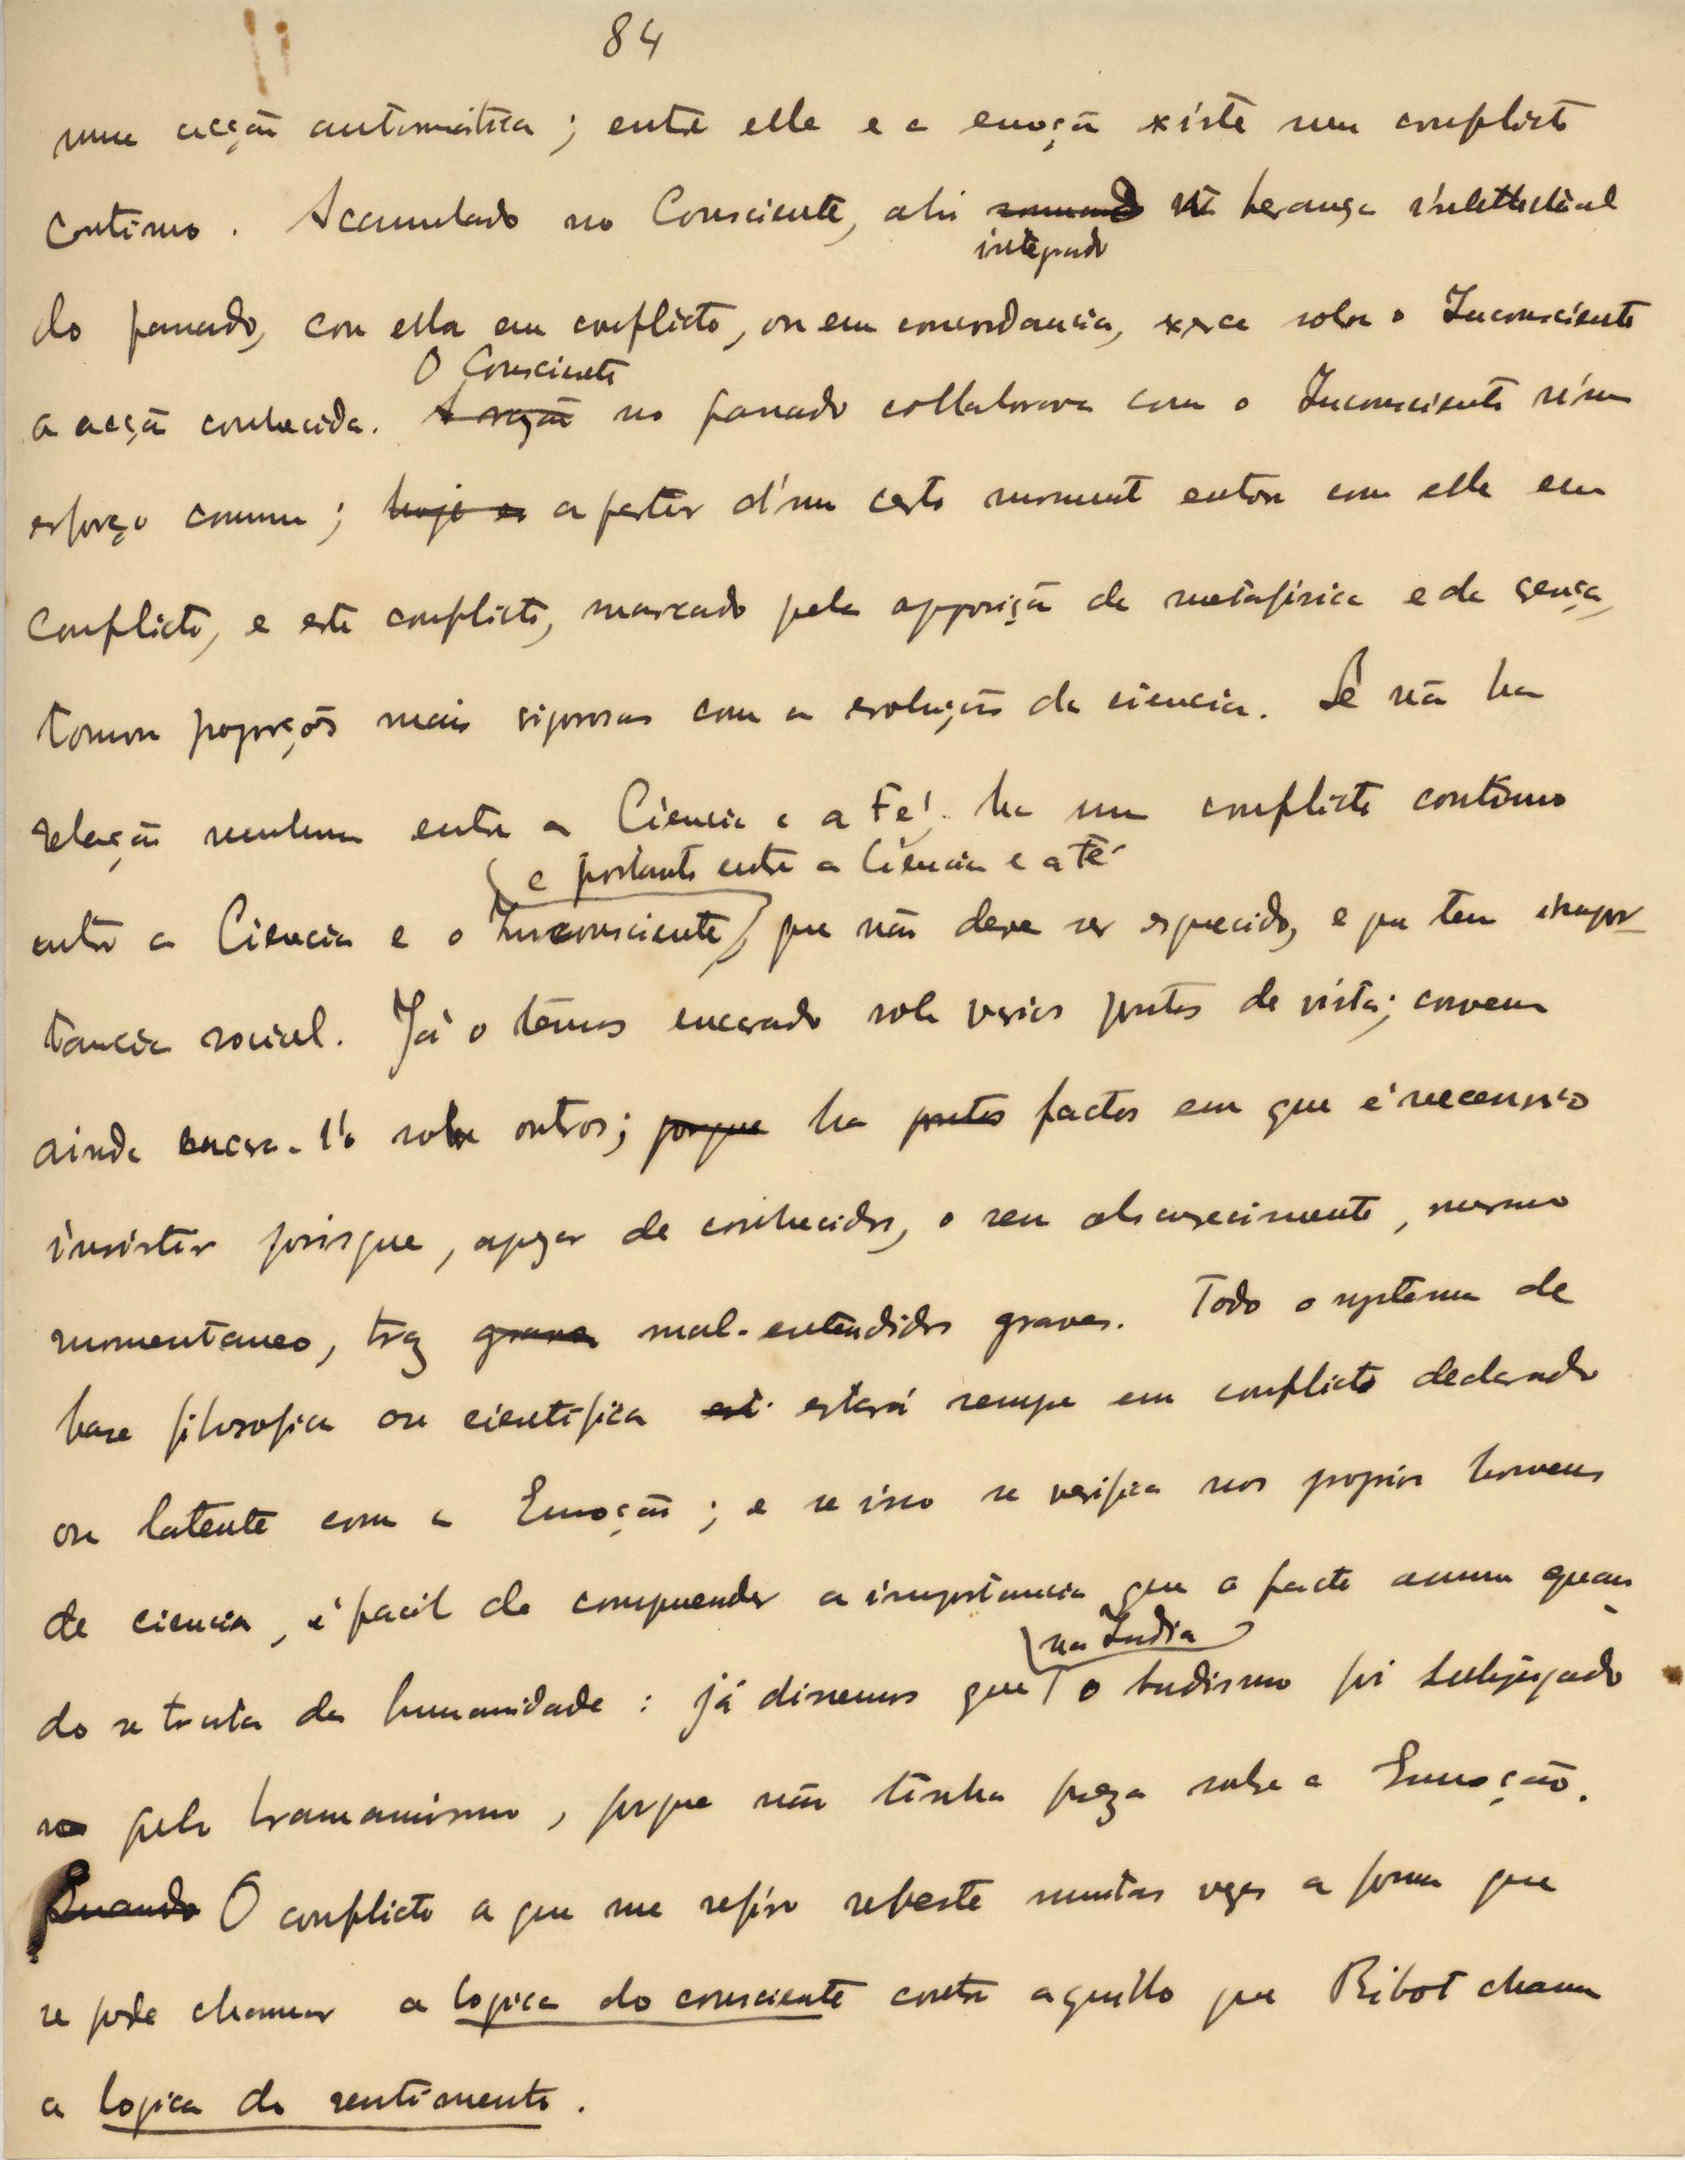 84
uma acção automática; entre elle e a emoção existe um conflicto
continuo. Acumulado no Consciente, ahi somando na herança intelectual
integrado
do passado, com ella em conflicto, ou em concordancia, exerce sobre o Inconsciente
O Consciente
a acção conhecida. A razão no passado collaborava com o Inconsciente n'um
esforço comum; hoje em a partir d'um certo momento entrou com elle em
conflicto, e este conflicto, marcado pela opposição da metafisica e da crença,
tomou proporções mais rigorosas com a evolução da ciencia. Se não ha
relação nenhuma entre a Ciencia e a Fé, ha um conflicto continuo
e portanto entre a Ciencia e a Fé
entre a Ciencia e o Inconsciente, que não deve ser esquecido, e que tem impor-
tancia social. Já o temos encarado sob varios pontos de vista; convem
ainda encara-l'o sobre outros; porque ha pontos factos em que é necessario
insistir porisque, apezar de conhecidos, o seu obscurecimento, mesmo
momentaneo, traz graves mal-entendidos graves. Todo o systema de
base filosofica ou cientifica est estará sempre em conflicto declarado
ou latente com a Emoção; e se isso se verifica nos proprios homens
de ciencia, é facil de comprender a importancia que o facto assume quan-
na India
do se trata da humanidade: já dissemos que o budismo foi subjugado
no pelo bramanismo, porque não tinha preza sobre a Emoção.
Quando O conflicto a que me refiro reveste muitas vezes a forma que
se pode chamar a logica do consciente contra aquillo que Ribot chama
a logica do sentimento.